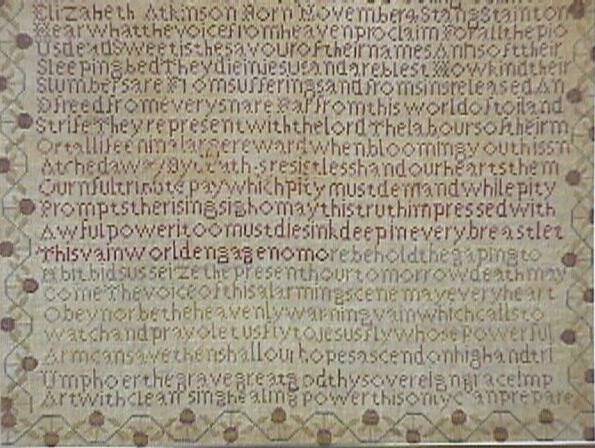 Elizabeth Atkinson Born November 4 Stang Stainton
Hear what the voice from heaven proclaim For all the pio
Us dead Sweet is the savour of their names And soft their
Sleeping bed They die in jesus and are blest How kind their
Slumbers are From sufferings and from sins released An
D freed from every snare Far from this world of toil and
Strife They represent with the lord The labours of their m
Ortal life en in a large reward when blooming youth is sn
Atched away By death s resistless hand our hearts the m
Ournful tribute pay which pity must demand while pity
Prompts the rising sigh o may this truth impressed with
Awful power i too must die sink deep in every breast let
This vain world engage no more behold the gaping to
it bids us seize the present hour tomorrow death may
Come The voice of this alarming scene may every heart
Obey nor be the heavenly warning vain which calls to
watch and pray o let us fly to jesus fly whose Powerful
Arm can save then shall our hopes ascend on high and tri
Umph oer the grave great god thy sovereign grace imp
Art with cleansing healing power this only can prepare